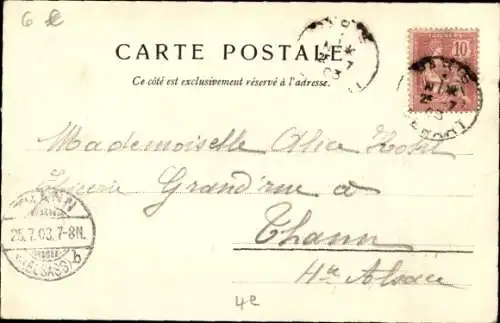 6 €
CARTE POSTALE
Ce côté est exclusivement réservé à l'adresse.
10
PARIS
25 7
03
Mademoiselle Alice
Epicerie Grand'rue à
Thann
Hte Alsace
THANN
25.7.03.7-8N.
(ELSASS) b
4e